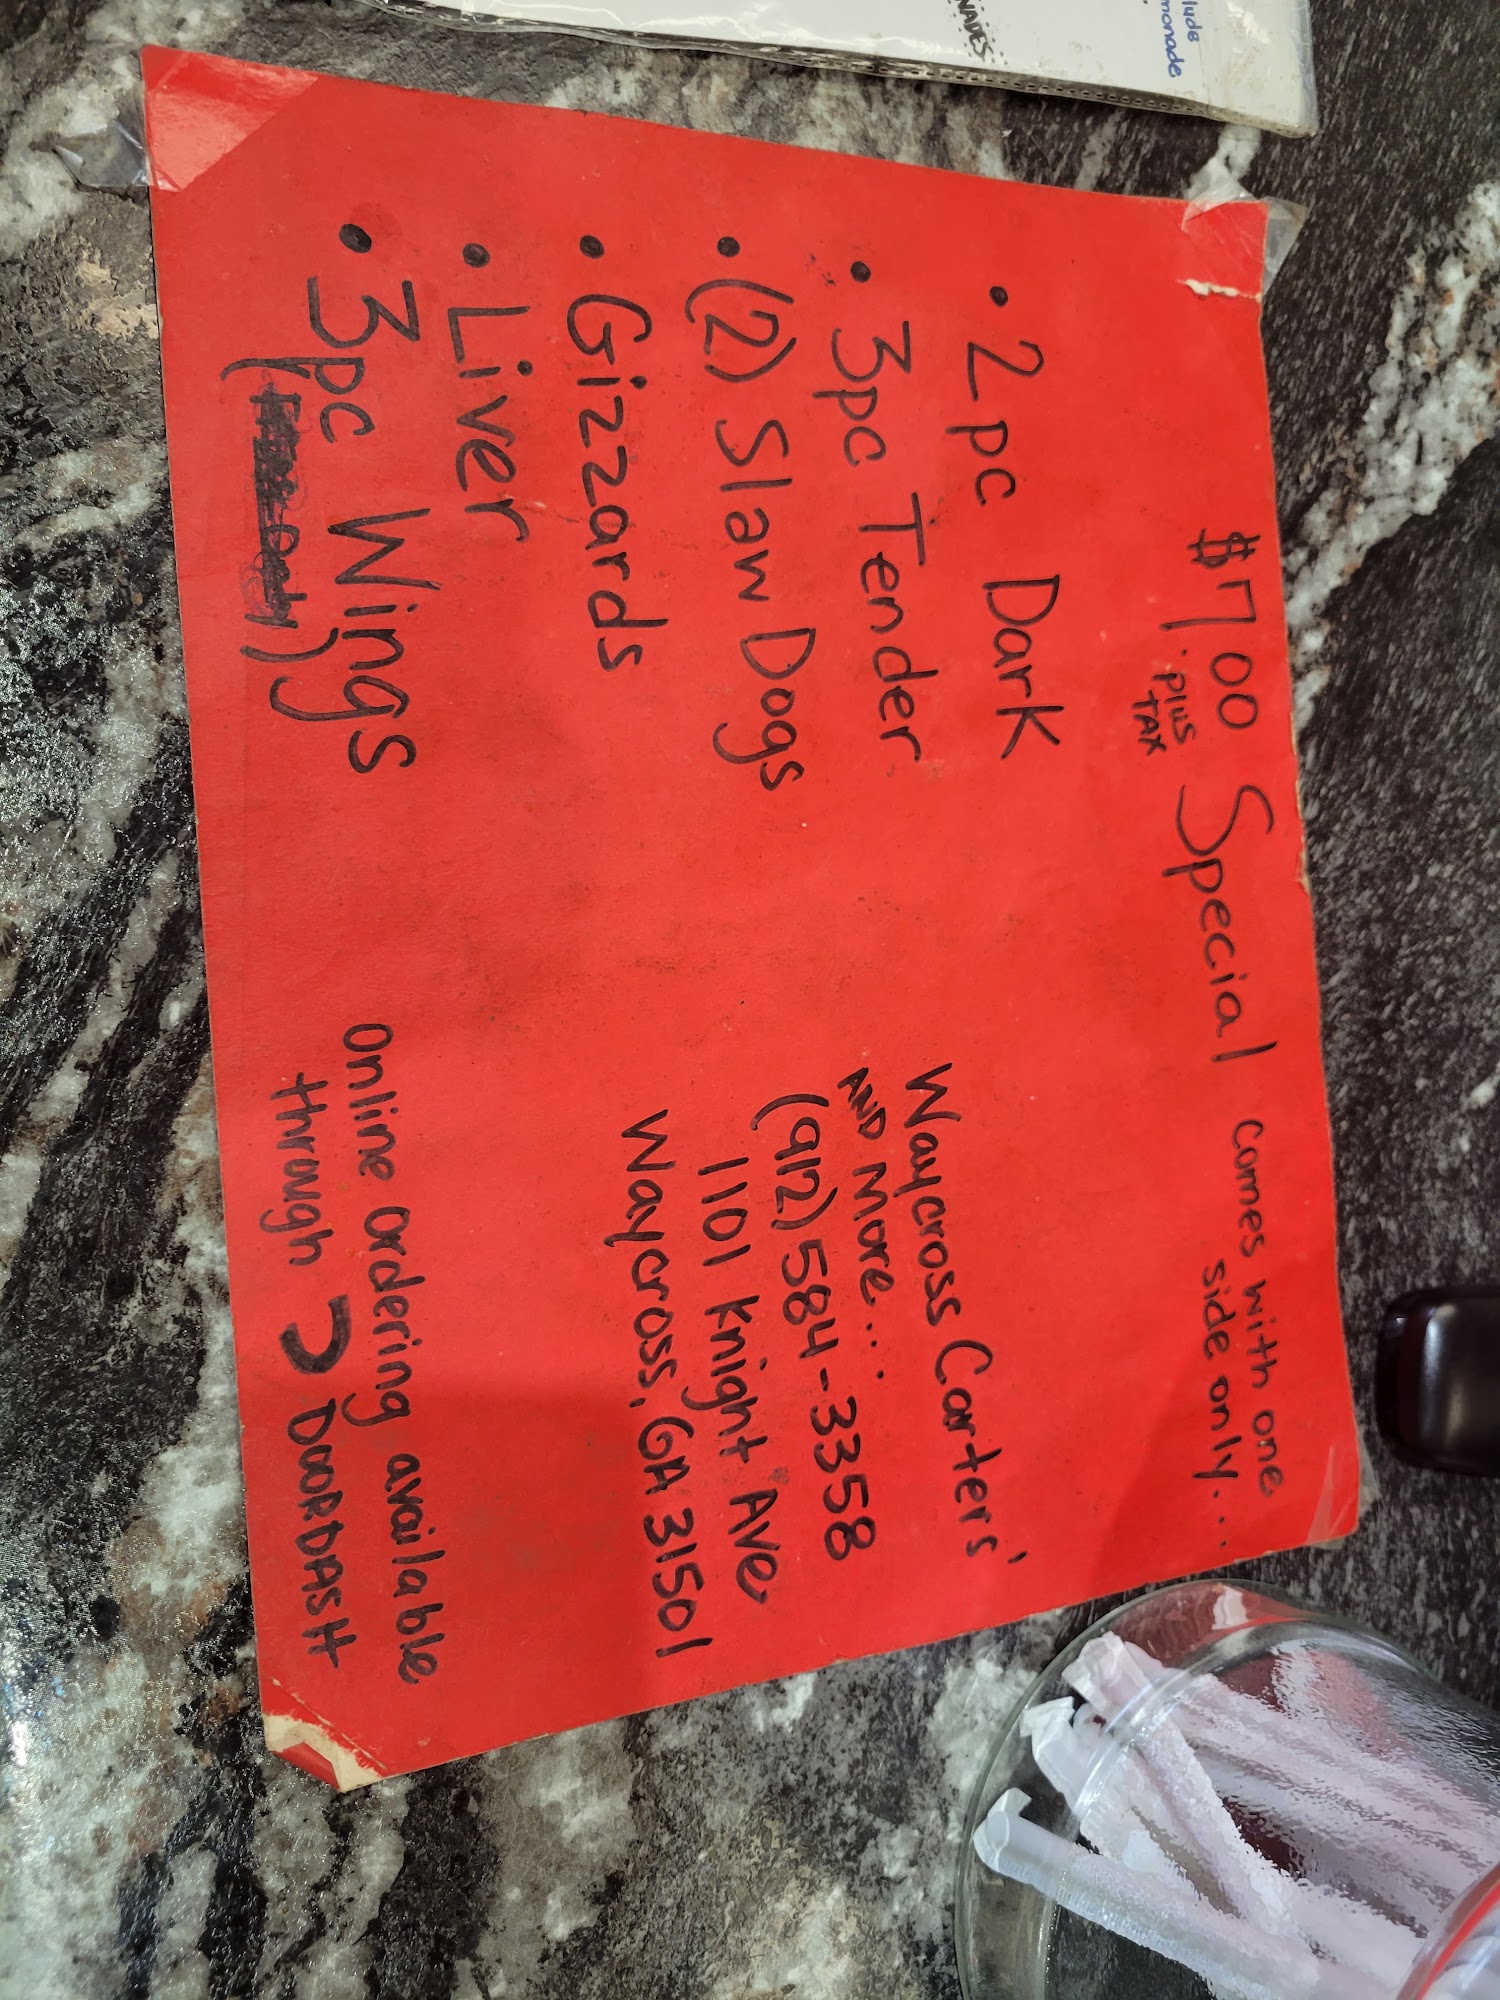 $7.00 Special comes with one
plus side only...
TAX
• 2pc Dark
• 3pc Tender
• (2) Slaw Dogs
• Gizzards
• Liver
• 3pc Wings
Waycross Carters'
AND More...
(912)584-3358
1101 Knight Ave
Waycross, GA 31501
Online ordering available
through DOORDASH
NADES
lude
monade